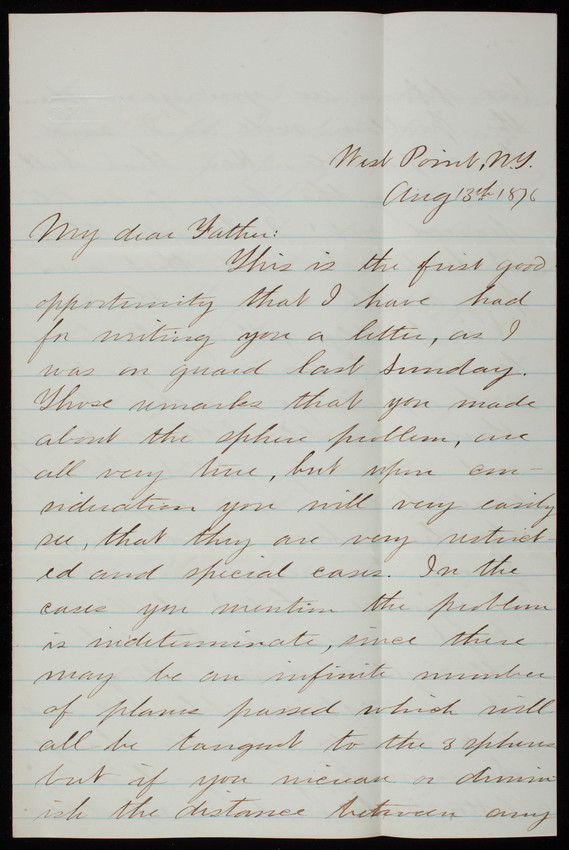 West Point, N.Y.
Aug 13th 1876
My dear Father:
This is the first good
opportunity that I have had
for writing you a letter, as I
was on guard last Sunday.
Those remarks that you made
about the sphere problem, are
all very true, but upon con-
sideration you will very easily
see, that they are very restrict-
ed and special cases. In the
cases you mention the problem
is indeterminate, since there
may be an infinite number
of planes passed which will
all be tangent to the 3 spheres
but if you increase or dimin-
ish the distance between any